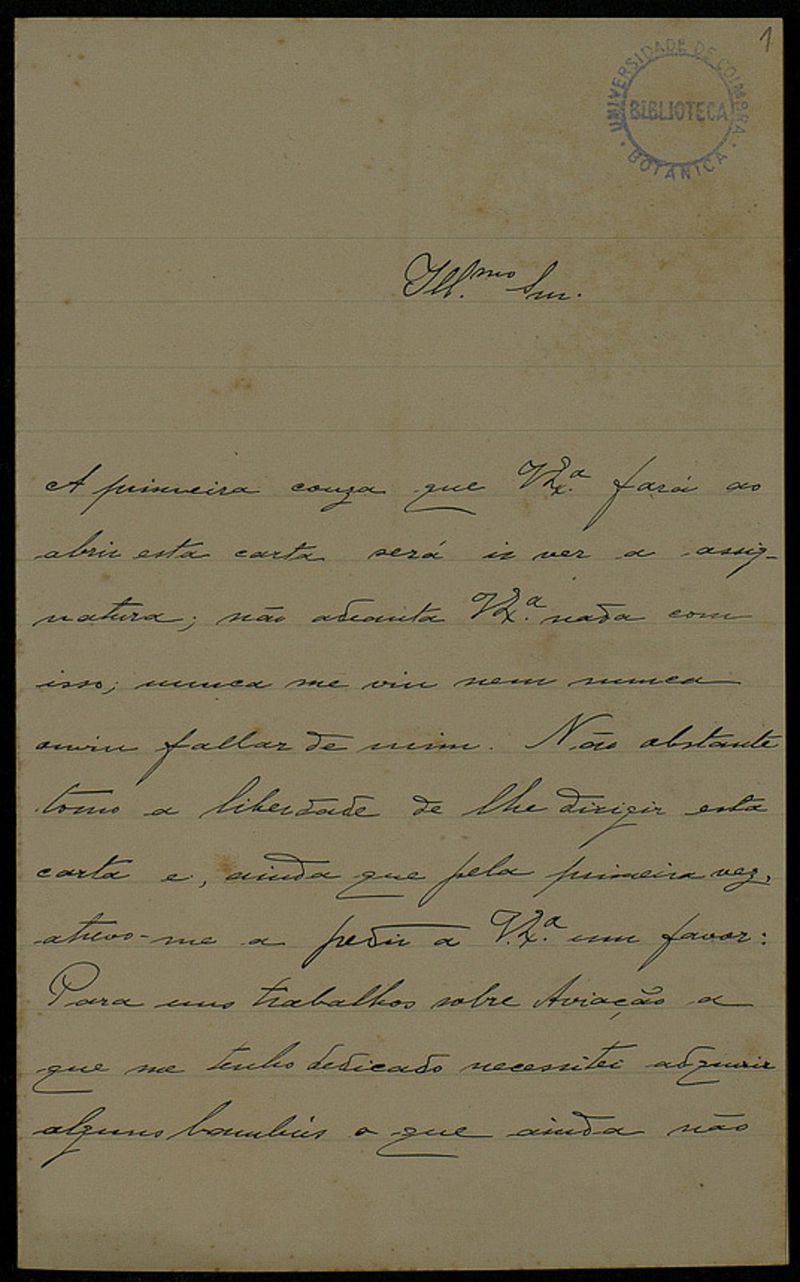 1
UNIVERSIDADE DE COIMBRA
BIBLIOTECA
BOTANICA
Ill.mo Snr.
A primeira couza que V.Ex.a fará ao
abrir esta carta será ir ver a assig-
natura; não adeanta V.Ex.a nada com
isso; nunca me viu nem nunca
ouviu fallar de mim. Não obstante
tomo a liberdade de lhe dirigir esta
carta e, ainda que pela primeira vez,
atrevo-me a pedir a V.Ex.a um favor:
Para uns trabalhos sobre Aviação a
que me tenho dedicado necessitei adquirir
alguns bambús o que ainda não